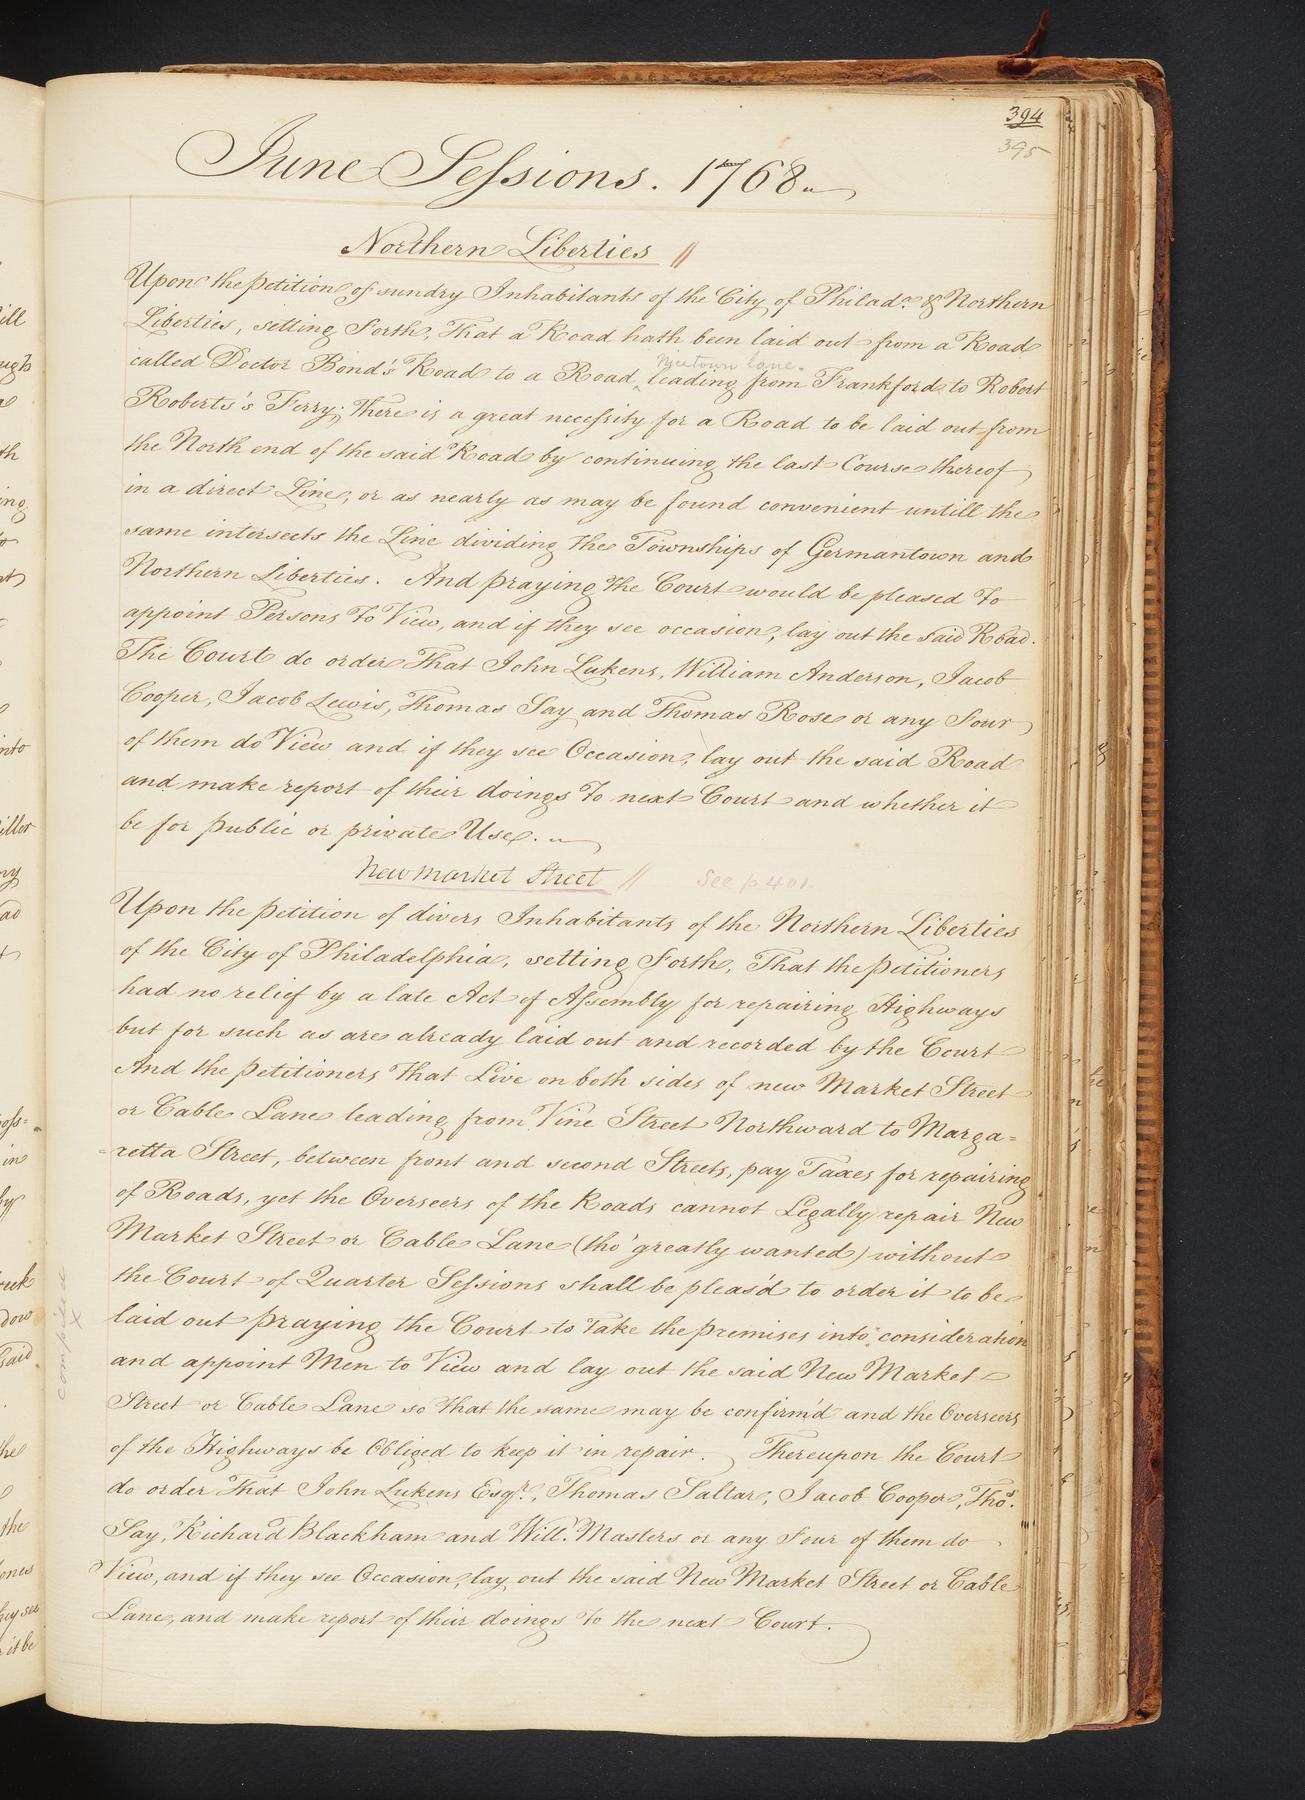 394
395
June Sessions. 1768
Northern Liberties //
Upon the petition of sundry Inhabitants of the City of Philada. & Northern
Liberties, setting Forth, That a Road hath been laid out from a Road
called Doctor Bond's Road to a Road ‸ leading from Frankford to Robert
Nicetown lane.
Roberts's Ferry; There is a great necessity for a Road to be laid out from
the North end of the said Road by continuing the last Course thereof
in a direct Line, or as nearly as may be found convenient untill the
same intersects the Line dividing the Townships of Germantown and
Northern Liberties. And praying the Court would be pleased To
appoint Persons To View, and if they see occasion, lay out the said Road.
The Court do order That John Lukens, William Anderson, Jacob
Cooper, Jacob Lewis, Thomas Say and Thomas Rose or any Four
of them do View and if they see Occasion, lay out the said Road
and make report of their doings To next Court and whether it
be for public or private Use.
New Market Street // See p 401.
Upon the petition of divers Inhabitants of the Northern Liberties
of the City of Philadelphia, setting Forth, That the petitioners
had no relief by a late Act of Assembly for repairing Highways
but for such as are already laid out and recorded by the Court
And the petitioners That Live on both sides of new Market Street
or Cable Lane leading from Vine Street Northward to Marga=
=retta Street, between front and second Streets, pay Taxes for repairing
of Roads, yet the Overseers of the Roads cannot Legally repair New
Market Street or Cable Lane (tho' greatly wanted) without
the Court of Quarter Sessions shall be pleas'd to order it to be
laid out praying the Court to Take the premises into consideration
and appoint Men to View and lay out the said New Market
Street or Cable Lane so That the same may be confirm'd and the Overseers
of the Highways be Obliged to keep it in repair. Thereupon the Court
do order That John Lukens Esqr., Thomas Saltar, Jacob Cooper, Thos.
Say, Richard Blackham and Will. Masters or any Four of them do
View, and if they see Occasion, lay out the said New Market Street or Cable
Lane, and make report of their doings To the next Court.